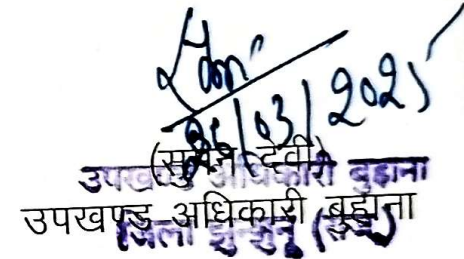 25/03/2025
(सुमन देवी)
उपखण्ड अधिकारी बुहाना
उपखण्ड अधिकारी बुहाना
जिला झुन्झुनू (राज.)